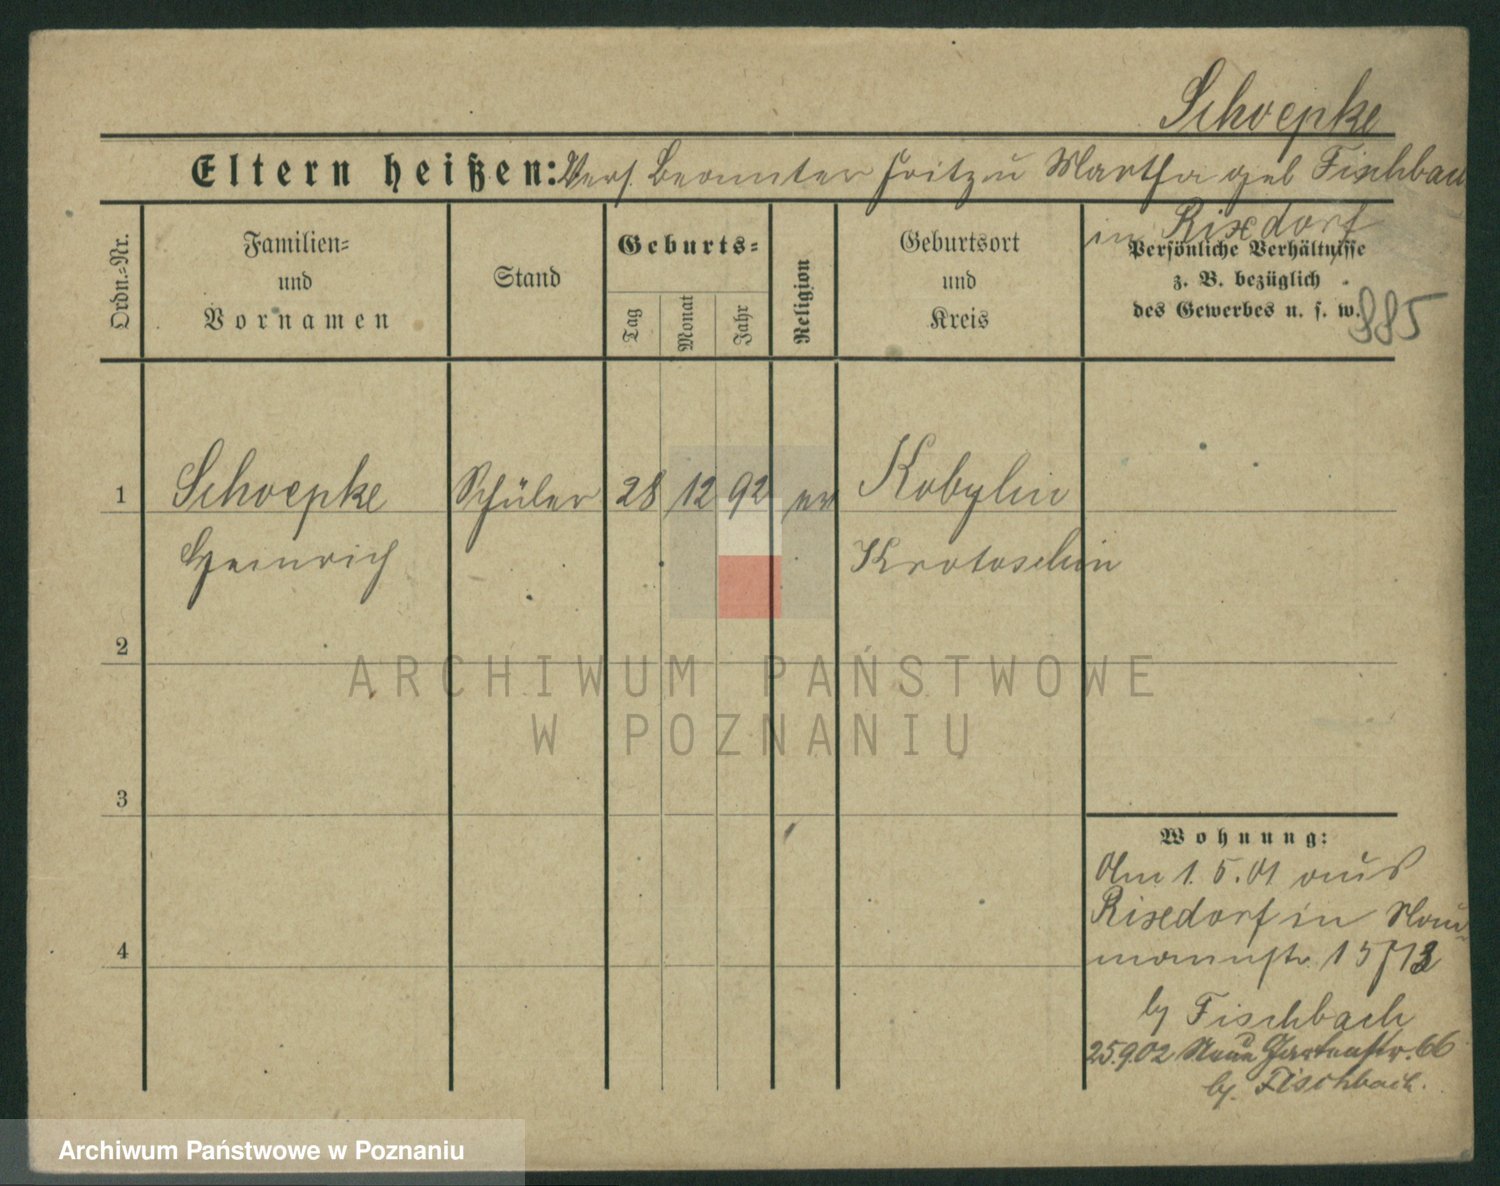 Schoepke
Eltern heißen: Vers. Beamter Fritz u Martha geb Fischbach
in Rixdorf
Ordn.=Nr.
Familien=
und
Vornamen
Stand
Geburts=
Tag
Monat
Jahr
Religion
Geburtsort
und
Kreis
Persönliche Verhältnisse
z. B. bezüglich
des Gewerbes u. s. w.
885
1 Schoepke Schüler 28 12 92 ev Kobylin
Heinrich Krotoschin
2
3
4
Wohnung:
Am 1.5.01 aus
Rixdorf in Nau-
mannstr 15
by Fischbach
25.9.02 Neue Gartenstr. 66
by. Fischbach.
ARCHIWUM PAŃSTWOWE
W POZNANIU
Archiwum Państwowe w Poznaniu